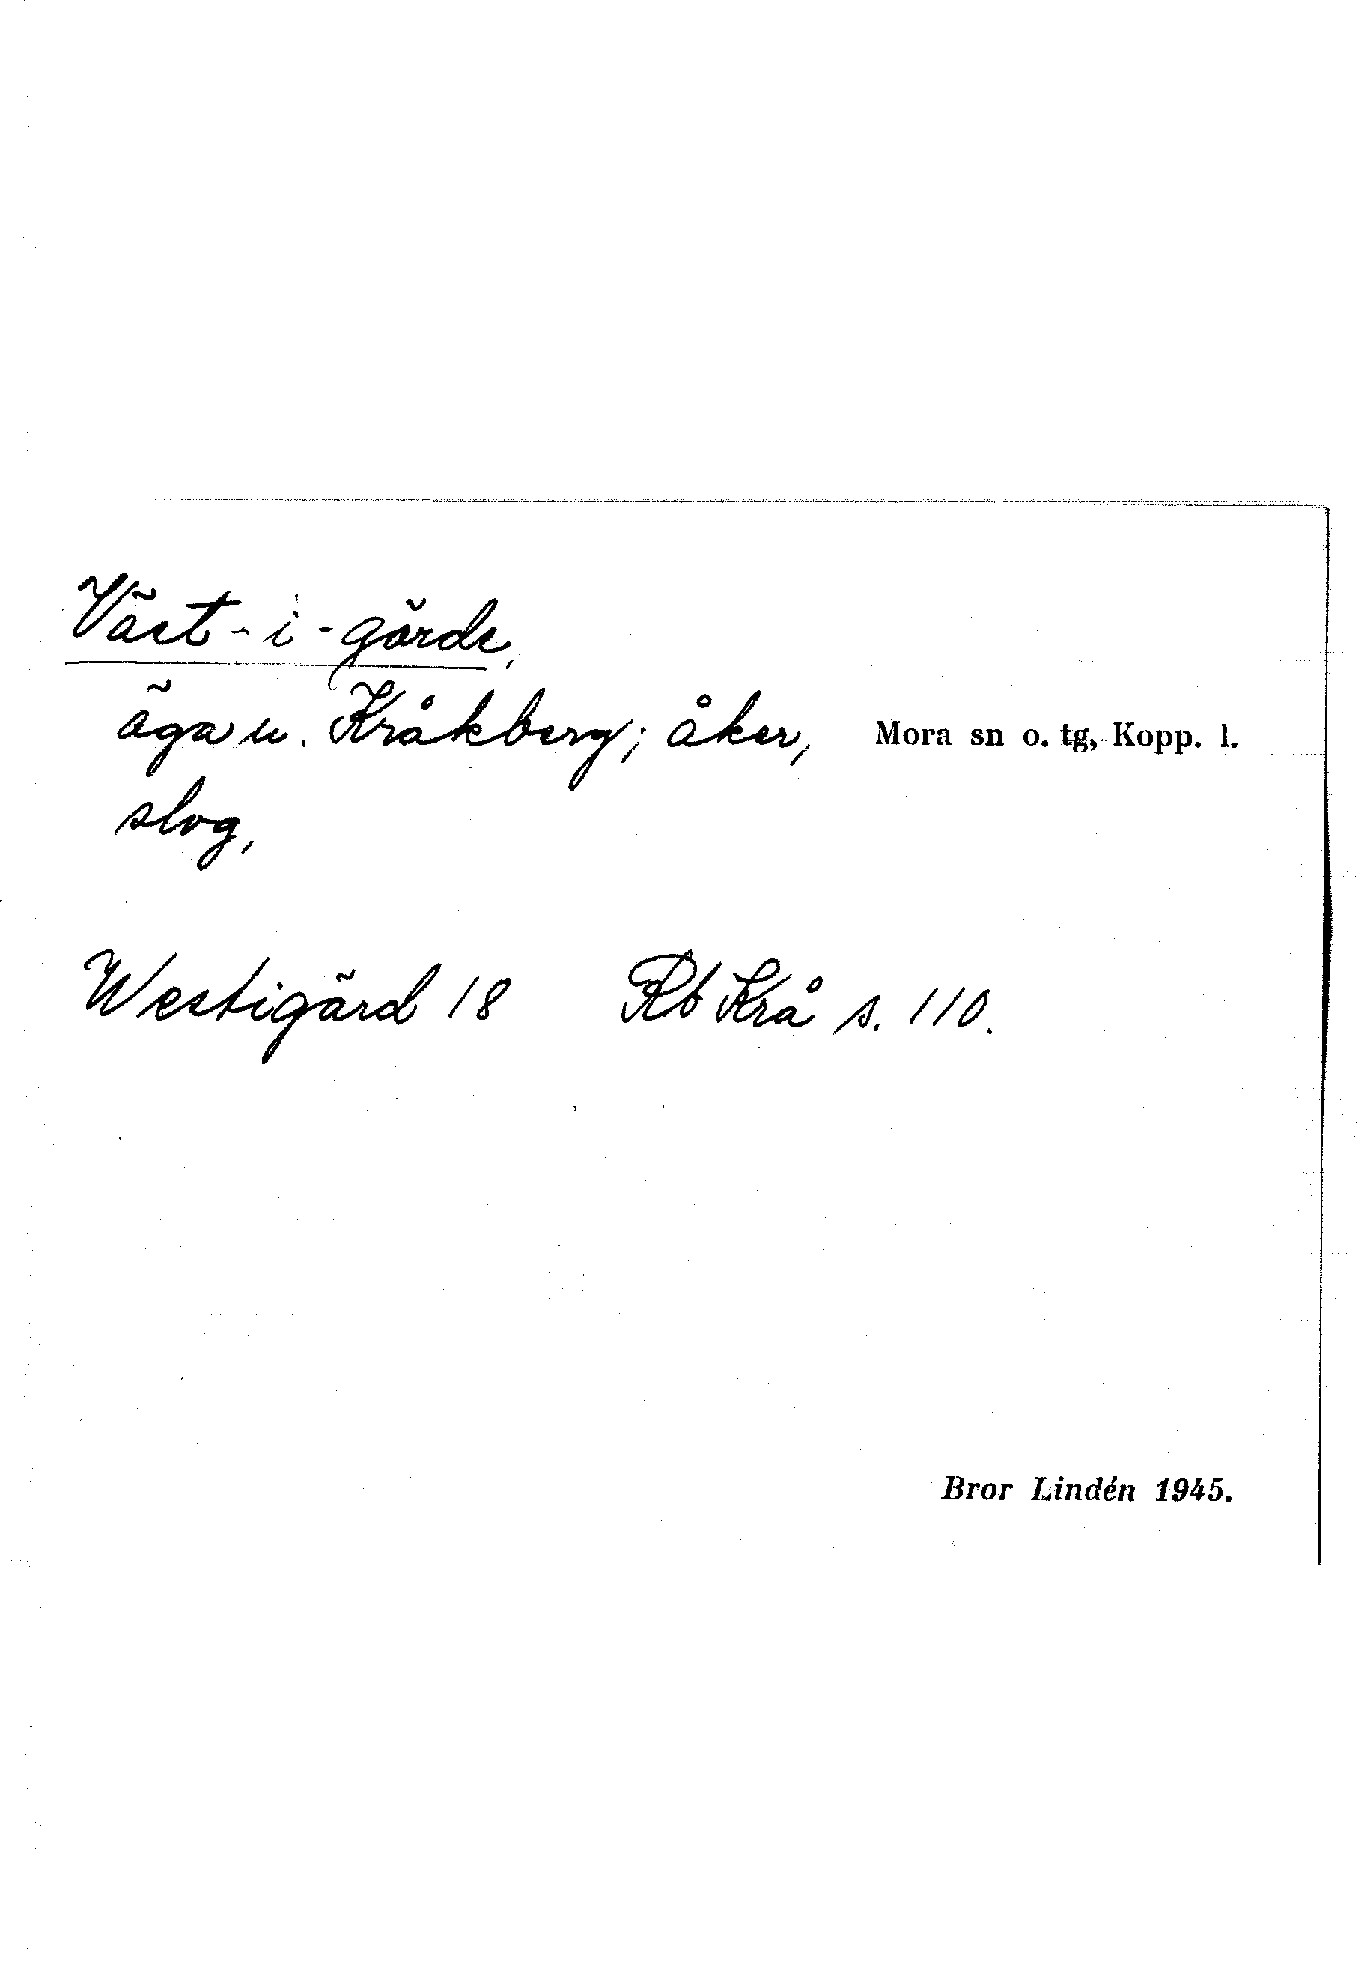 Väst-i-gärde,
äga u. Kråkberg; åker, Mora sn o. tg, Kopp. l.
slog,
Westigärd 18 Rb Krå s. 110.
Bror Lindén 1945.